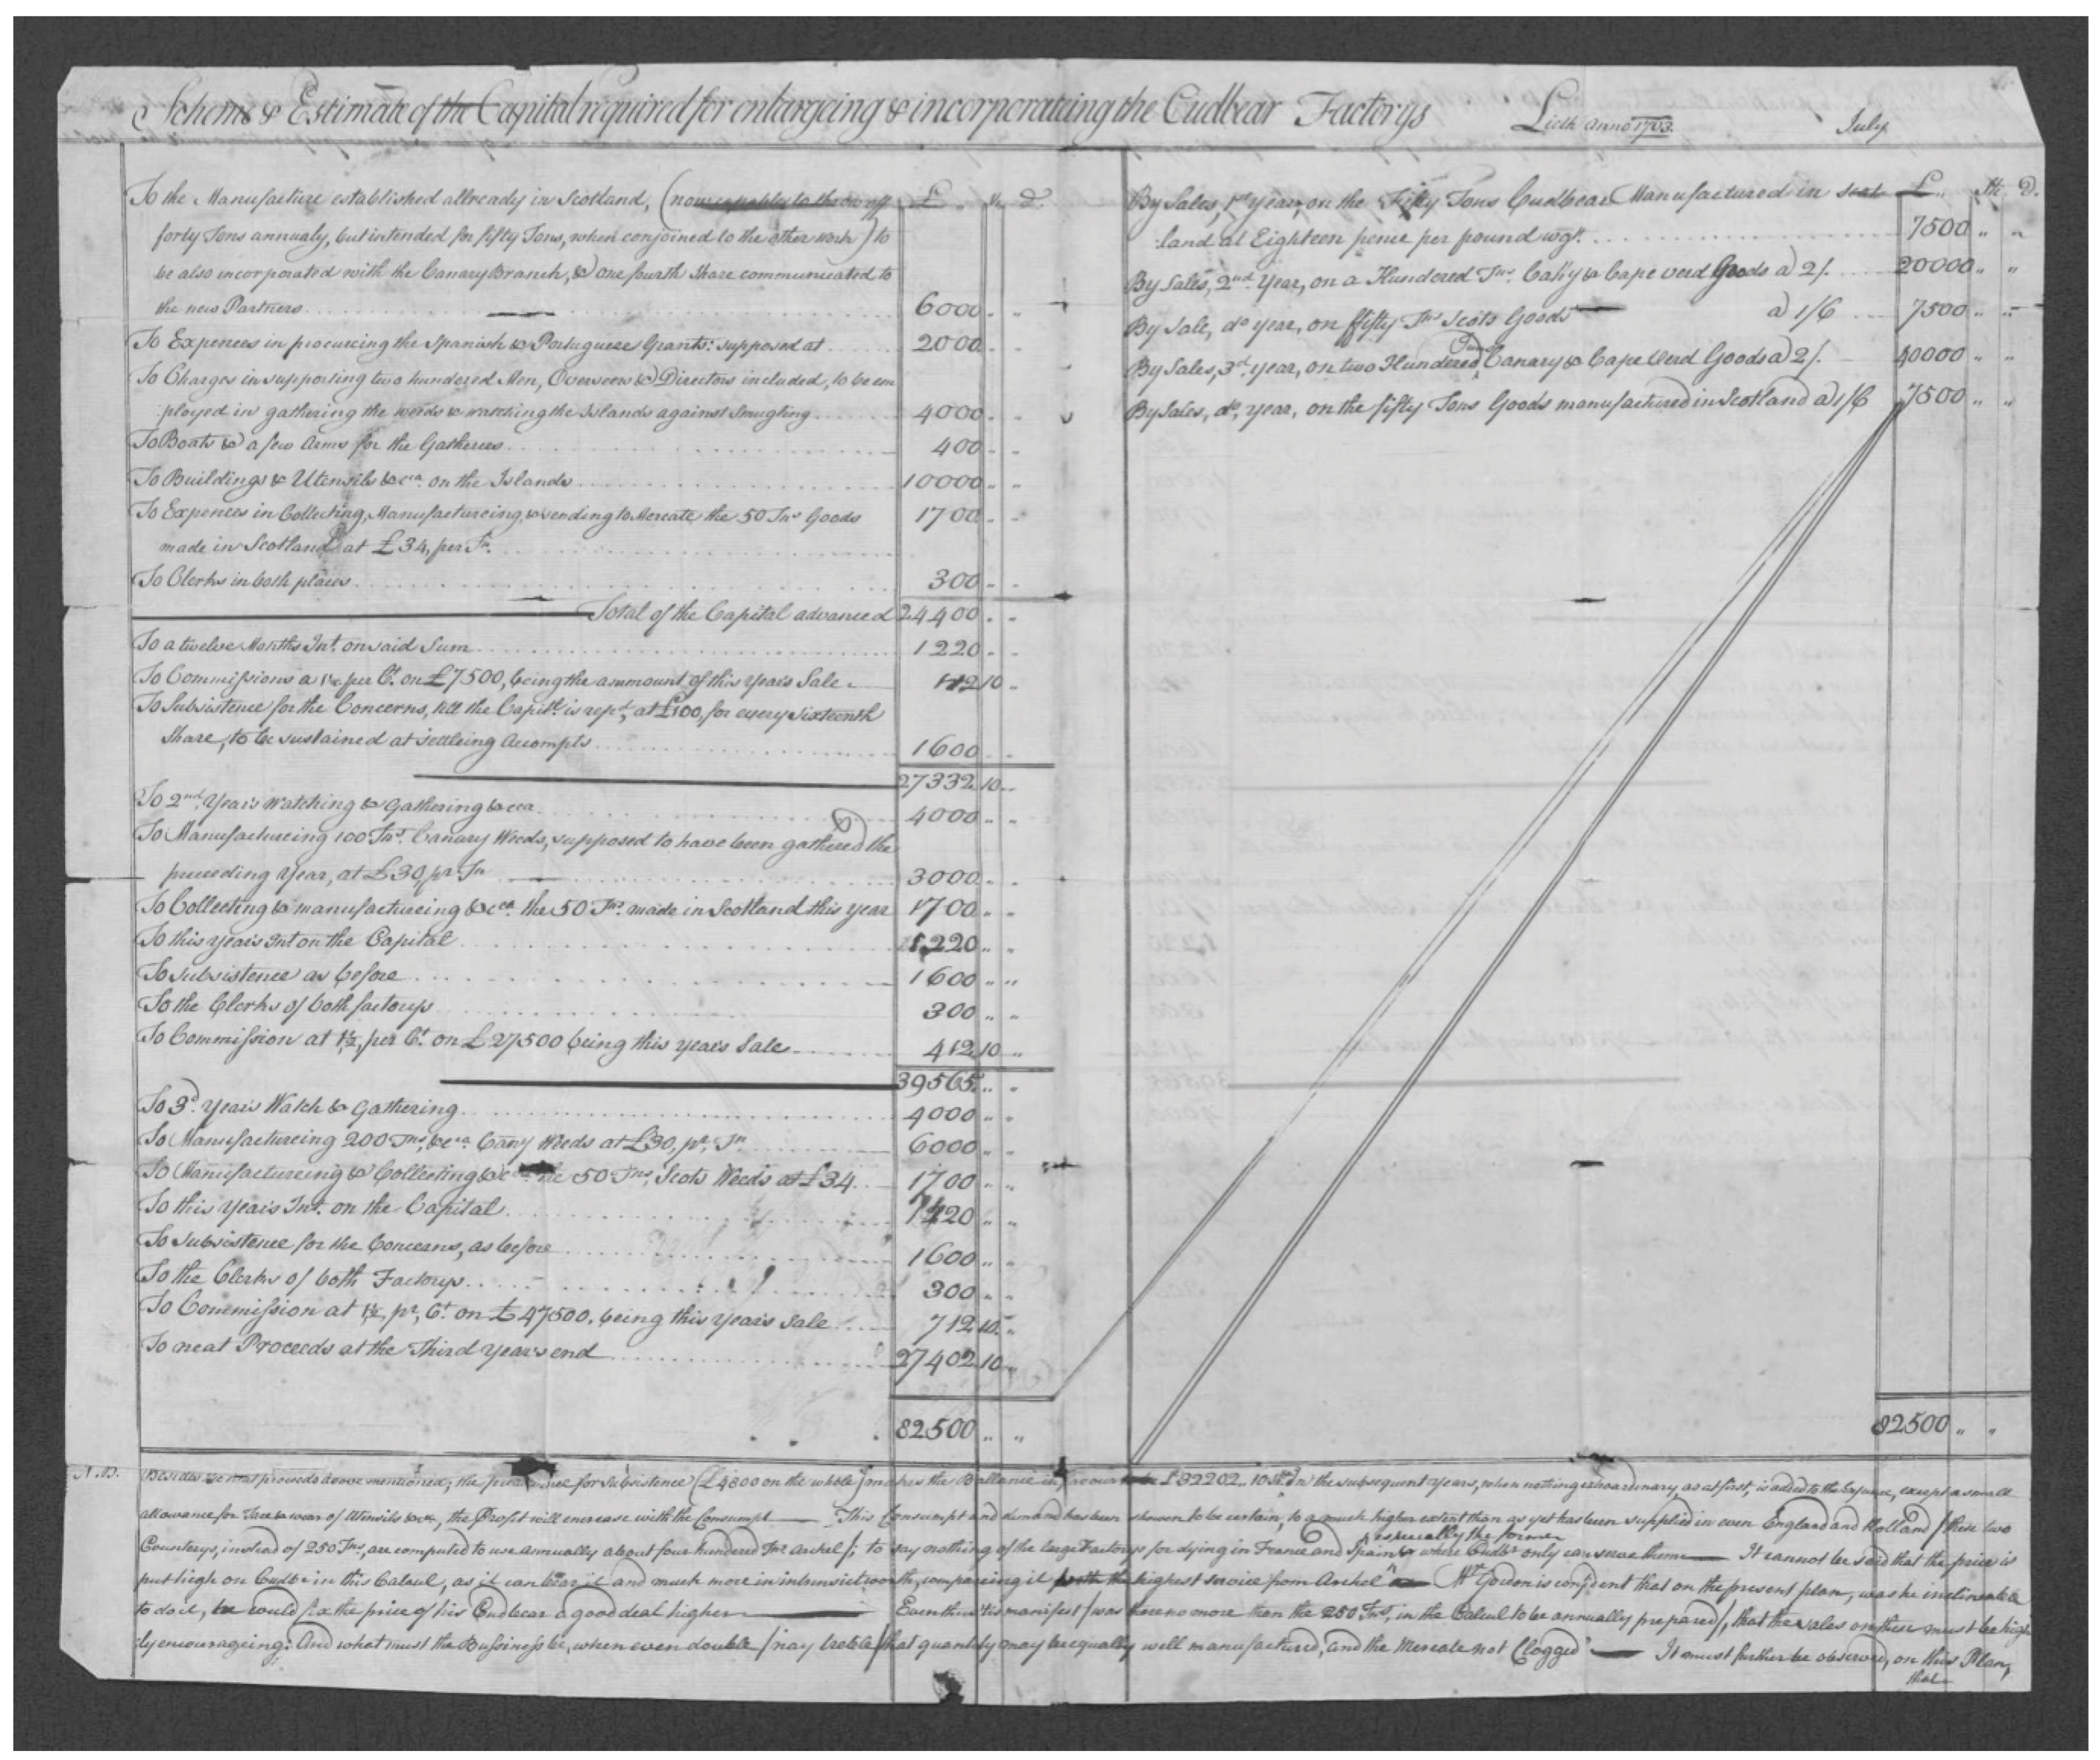 Scheme & Estimate of the Capital required for enlargeing & incorporateing the Cudbear Factorys Lieth Anno July
To the Manufacture established allready in Scotland, (now
forty Tons annualy, but intended for fifty Tons, when conjoined to the other work) to
be also incorporated with the Canary Branch, & one fourth Share communicated to
the new Partners 6000 " "
To Expences in procureing the Spanish & Portuguese Grants: supposed at 2000 " "
To Charges in supporting two hundered Men, Overseers & Directors included, to be em
ployed in gathering the weeds & watching the Islands against Smugling 4000 " "
To Boats & a few Arms for the Gatherers 400 " "
To Buildings & Utensils &ca. on the Islands 10000 " "
To Expences in Collecting, Manufactureing, & vending to Mercate the 50 Tns Goods 1700 " "
made in Scotland at £34, per Tn.
To Clerks in both places 300 " "
Total of the Capital advanced 24400 " "
To a twelve Months Int. on said Sum 1220 " "
To Commissions a 1½ per Ct. on £7500, being the ammount of this years Sale 112 10 "
To Subsistence for the Concerns, till the Capitl. is repd., at £100, for every sixteenth
Share, to be sustained at settleing Accompts 1600 " "
27332 10 "
To 2nd. Years Watching & Gathering &ca 4000 " "
To Manufactureing 100 Tns. Canary Weeds, supposed to have been gathered the
preceeding Year, at £30, pr. Tn 3000 " "
To Collecting & manufactureing &ca. the 50 Tns. made in Scotland this year 1700 " "
To this years Int on the Capital 1220 " "
To Subsistence as before 1600 " "
To the Clerks of both factorys 300 " "
To Commission at 1½, per Ct. on £27500 being this years Sale 412 10 "
39565 " "
To 3d. Years Watch & Gathering 4000 " "
To Manufactureing 200 Tns, &ca. Cany Weeds at £30, pr. Tn 6000 " "
To Manufactureing & Collecting &c the 50 Tns, Scots Weeds at £34 1700 " "
To this years Int. on the Capital 1220 " "
To Subsistence for the Concerns, as before 1600 " "
To the Clerks of both Factorys 300 " "
To Commission at 1½, pr, Ct. on £47500, being this years Sale 712 10 "
To neat Proceeds at the Third Year's end 27402 10 "
82500 " "
£ " Sh. D.
By Sales, 1st year, on the Fifty Tons Cudbear Manufactured in Scot
land at Eighteen pence per pound wgt. 7500 " "
By Sales, 2nd. Year, on a Hundered Tns. Cany & Cape verd Goods a 2/. 20000 " "
By Sale, do. year, on fifty Tns Scots Goods a 1/6 7500 " "
By Sales, 3d. year, on two Hundered Tuns Canary & Cape Verd Goods a 2/. 40000 " "
By Sales, do, year, on the fifty Tons Goods manufactured in Scotland a 1/6 7500 " "
82500 " "
N.B. Besides the neat proceeds above mentioned; the for Subsistence (£4800 on the whole) makes the Ballance in favour £32202.. 10 Sh. In the subsequent years, when nothing extraordinary, as at first, is added to the Expence, except a small
allowance for Tare & wear of Utensils &ca, the Profit will encrease with the Consumpt — This Consumpt and demand has been shown to be certain, to a much higher extent than as yet has been supplied in even England and Holland / these two
Counterys, instead of 250 Tns, are computed to use annually about four hundered Tns Archel /; to say nothing of the large Factorys for dying in France and Spain & especially the former where Cudbr only can serve them — It cannot be said that the price is
put high on Cudbr in this Calcul, as it can bear it and much more in intrinsict worth, compareing it the highest service from Archel — Mr. Gordon is confident that on the present plan, was he inclineable
to do it, he would fix the price of his Cudbear a good deal higher — Even thus 'tis manifest / was there no more than the 250 Tns, in the Calcul to be annually prepared /, that the sales on these must be high
ly encourageing: And what must the Bussiness be, when even double / nay treble / that quantity may be equally well manufactured, and the Mercate not Clogged — It must further be observed, on this Plan,
that